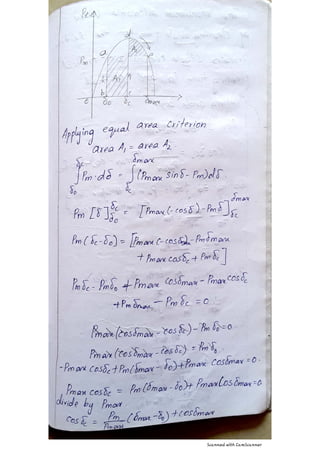 Pe
d
a
e
A2
Pm
A1
b
0
δ0
δc
δmax
Applying equal area criterion
area A1 = area A2
∫δ0^δc Pm·dδ = ∫δc^δmax (Pmax sinδ - Pm)dδ
Pm [δ]δ0^δc = [Pmax(-cosδ) - Pmδ]δc^δmax
Pm(δc-δ0) = [Pmax(-cosδmax) - Pmδmax
+Pmax cosδc + Pmδc]
Pmδc - Pmδ0 + Pmax cosδmax - Pmax cosδc
+Pmδmax - Pmδc = 0
Pmax(cosδmax - cosδc) - Pmδ0 = 0
Pmax(cosδmax - cosδc) = Pmδ0
-Pmax cosδc + Pm(δmax - δ0) + Pmax cosδmax = 0.
Pmax cosδc = Pm(δmax-δ0) + Pmax Cosδmax = 0
divide by Pmax
cosδc = Pm/Pmax (δmax-δ0) + cosδmax
Scanned with CamScanner